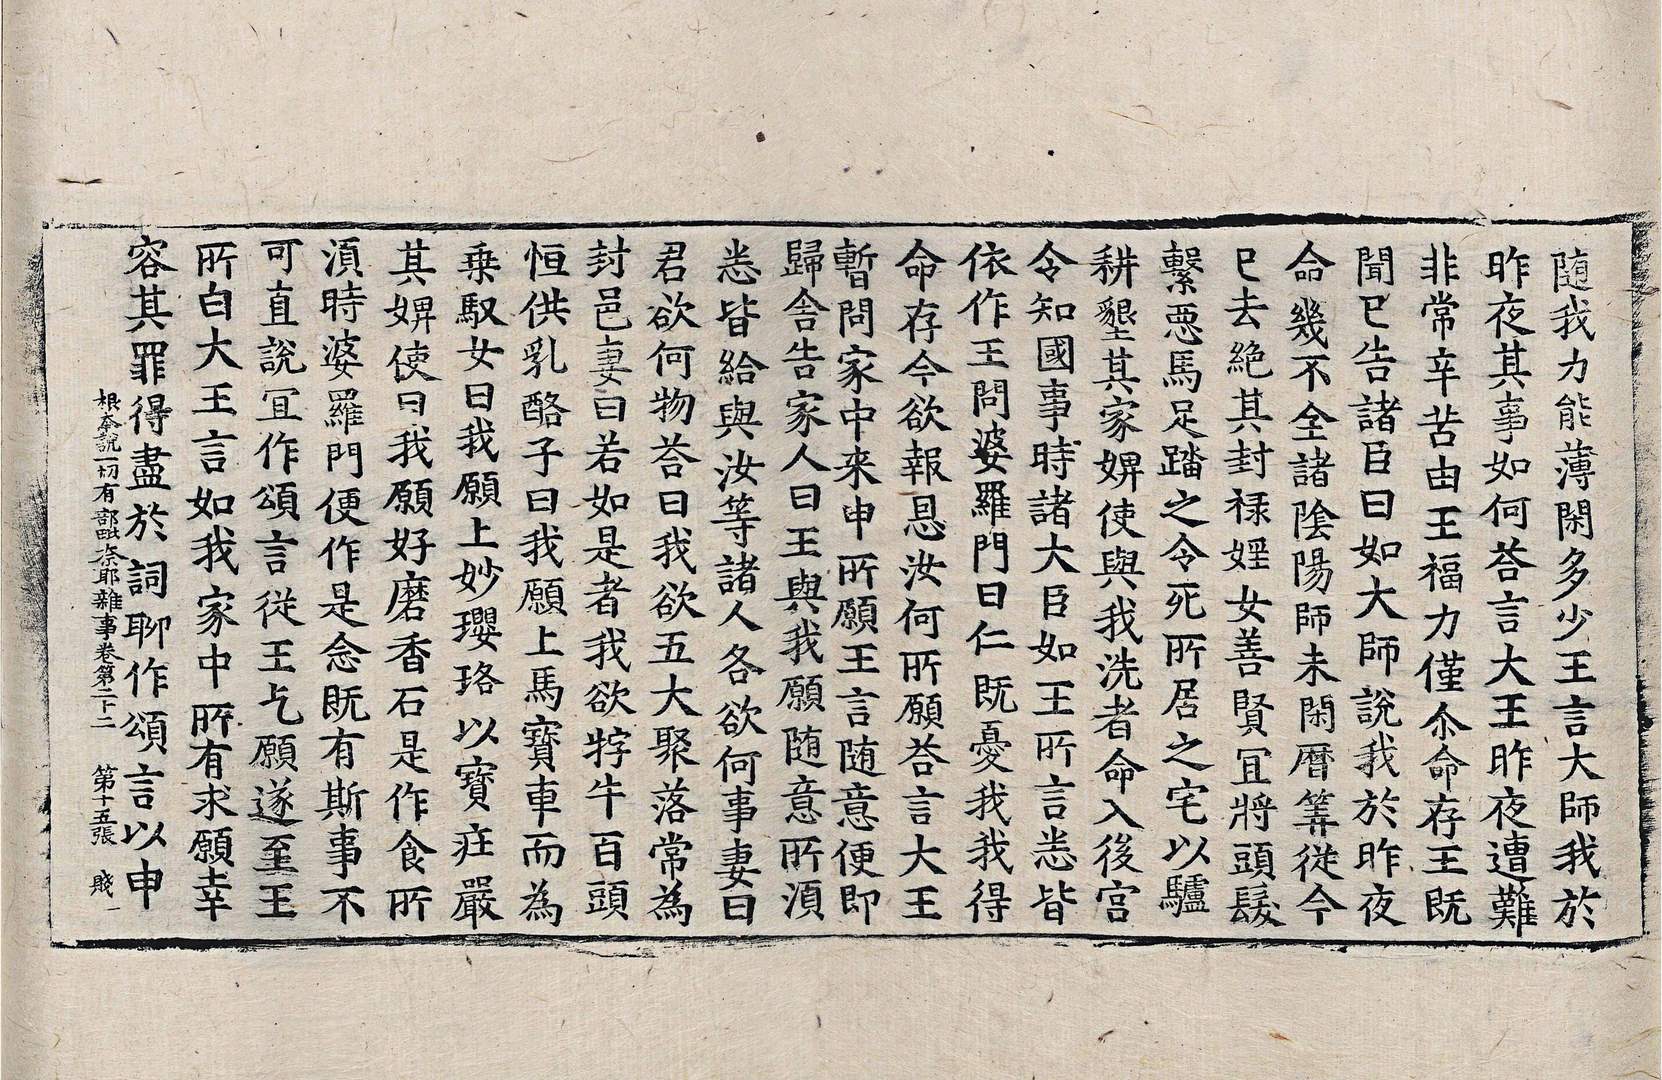 随我力能薄閑多少王言大師我於
昨夜其事如何荅言大王昨夜遭難
非常辛苦由王福力僅尒命存王既
聞已告諸臣曰如大師說我於昨夜
命幾不全諸陰陽師未閑曆筭従今
已去絶其封禄婬女善賢冝將頭髮
繫悪馬足踏之令死所居之宅以驢
耕墾其家婢使與我洗者命入後宮
令知國事時諸大臣如王所言悉皆
依作王問婆羅門曰仁既憂我我得
命存今欲報恩汝何所願荅言大王
暫問家中来申所願王言随意便即
歸舎告家人曰王與我願随意所湏
悉皆給與汝等諸人各欲何事妻曰
君欲何物荅曰我欲五大聚落常為
封邑妻曰若如是者我欲牸牛百頭
恒供乳酪子曰我願上馬寶車而為
乗馭女曰我願上妙瓔珞以寶疰嚴
其婢使曰我願好磨香石是作食所
湏時婆羅門便作是念既有斯事不
可直說冝作頌言従王乞願遂至王
所白大王言如我家中所有求願幸
容其罪得盡於詞聊作頌言以申
根本說一切有部毗奈耶雜事卷第二十二 第十五張 賤